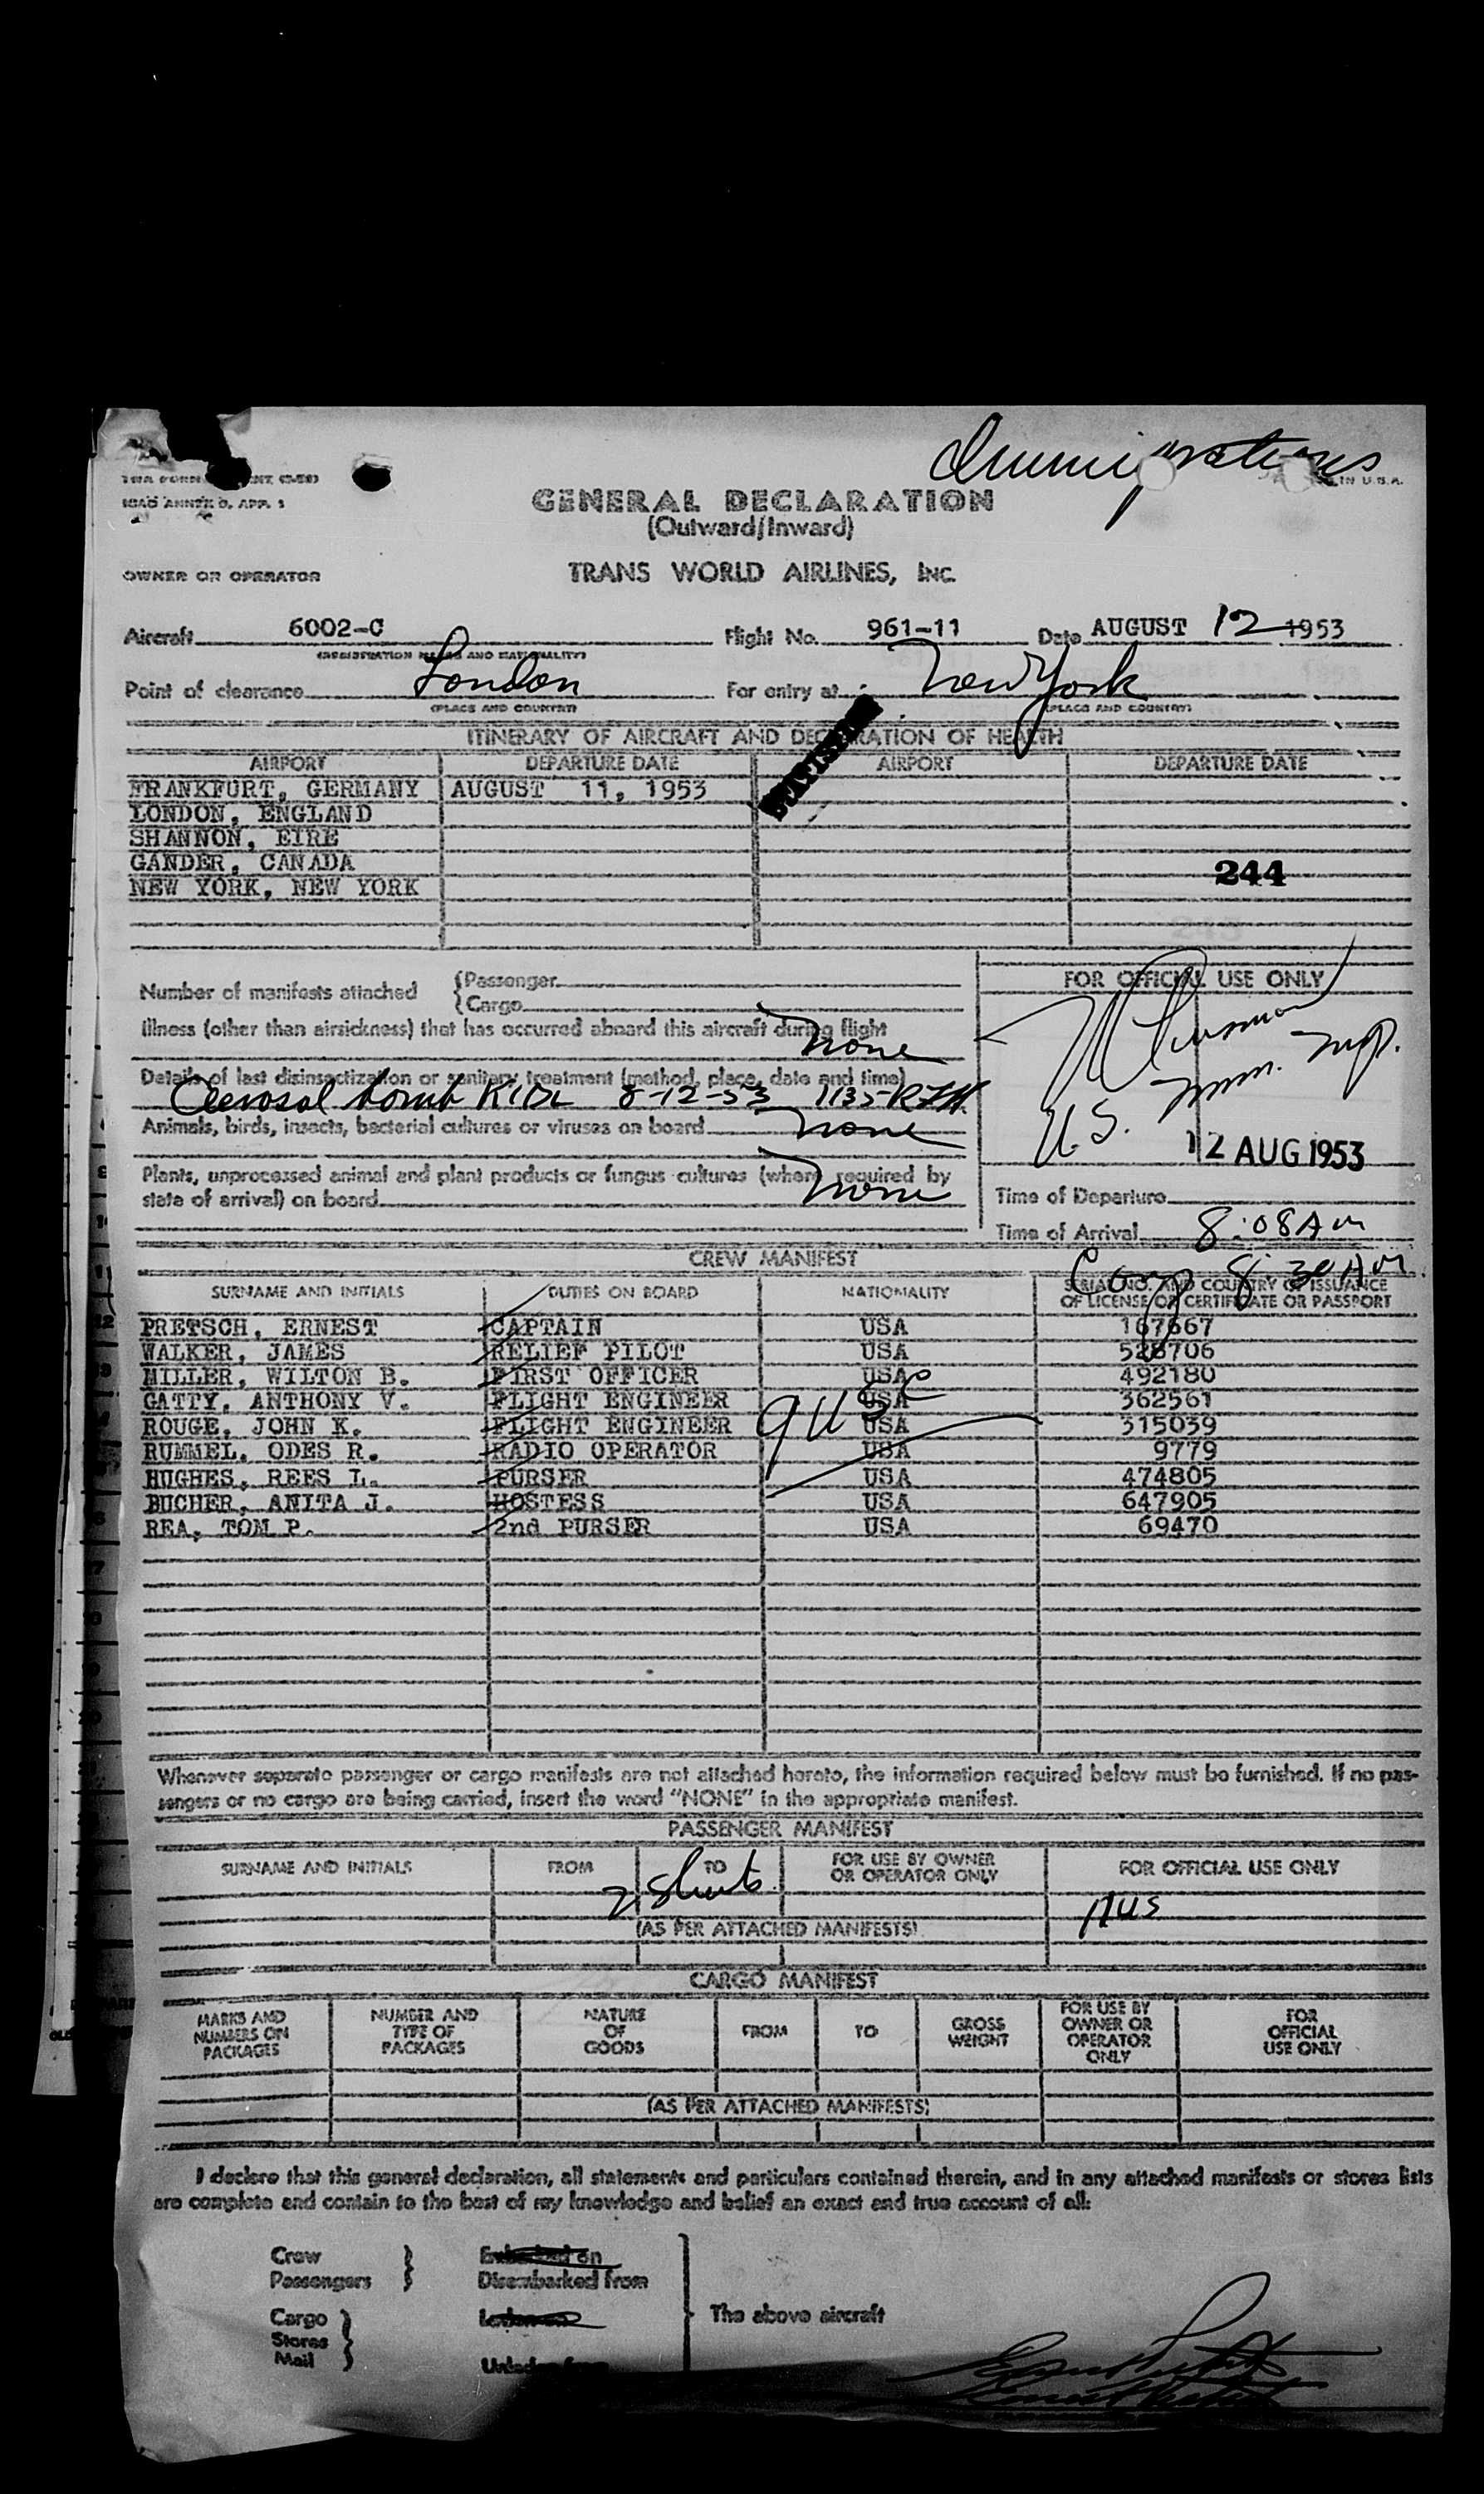 Immigrations
IN U.S.A.
ICAO ANNEX 9, APP. 1
GENERAL DECLARATION
(Outward/Inward)
OWNER OR OPERATOR TRANS WORLD AIRLINES, INC.
Aircraft 6002-C Flight No. 961-11 Date AUGUST 12 1953
(REGISTRATION MARKS AND NATIONALITY)
Point of clearance London For entry at New York
(PLACE AND COUNTRY) (PLACE AND COUNTRY)
ITINERARY OF AIRCRAFT AND DECLARATION OF HEALTH
AIRPORT DEPARTURE DATE AIRPORT DEPARTURE DATE
FRANKFURT, GERMANY AUGUST 11, 1953
LONDON, ENGLAND
SHANNON, EIRE
GANDER, CANADA 244
NEW YORK, NEW YORK
Number of manifests attached {Passenger
{Cargo
FOR OFFICIAL USE ONLY
Illness (other than airsickness) that has occurred aboard this aircraft during flight
None
Details of last disinsectization or sanitary treatment (method, place, date and time)
Aerosol bomb KIDL 8-12-53 1135
Animals, birds, insects, bacterial cultures or viruses on board None
U.S. Imm. Insp.
12 AUG 1953
Plants, unprocessed animal and plant products or fungus cultures (where required by
state of arrival) on board None
Time of Departure
Time of Arrival 8:08 AM
8:30 AM
CREW MANIFEST
SURNAME AND INITIALS DUTIES ON BOARD NATIONALITY SERIAL NO. AND COUNTRY OF ISSUANCE
OF LICENSE OR CERTIFICATE OR PASSPORT
PRETSCH, ERNEST CAPTAIN USA 167667
WALKER, JAMES RELIEF PILOT USA 528706
MILLER, WILTON B. FIRST OFFICER USA 492180
GATTY, ANTHONY V. FLIGHT ENGINEER USA 362561
ROUGE, JOHN K. FLIGHT ENGINEER USA 315039
9 USC
RUMMEL, ODES R. RADIO OPERATOR USA 9779
HUGHES, REES L. PURSER USA 474805
BUCHER, ANITA J. HOSTESS USA 647905
REA, TOM P. 2nd PURSER USA 69470
Whenever separate passenger or cargo manifests are not attached hereto, the information required below must be furnished. If no pas-
sengers or no cargo are being carried, insert the word "NONE" in the appropriate manifest.
PASSENGER MANIFEST
SURNAME AND INITIALS FROM TO FOR USE BY OWNER
OR OPERATOR ONLY FOR OFFICIAL USE ONLY
(AS PER ATTACHED MANIFESTS)
CARGO MANIFEST
MARKS AND
NUMBERS ON
PACKAGES NUMBER AND
TYPE OF
PACKAGES NATURE
OF
GOODS FROM TO GROSS
WEIGHT FOR USE BY
OWNER OR
OPERATOR
ONLY FOR
OFFICIAL
USE ONLY
(AS PER ATTACHED MANIFESTS)
I declare that this general declaration, all statements and particulars contained therein, and in any attached manifests or stores lists
are complete and contain to the best of my knowledge and belief an exact and true account of all:
Crew Embarked on
Passengers Disembarked from
Cargo Laden on The above aircraft
Stores
Mail Unladen from